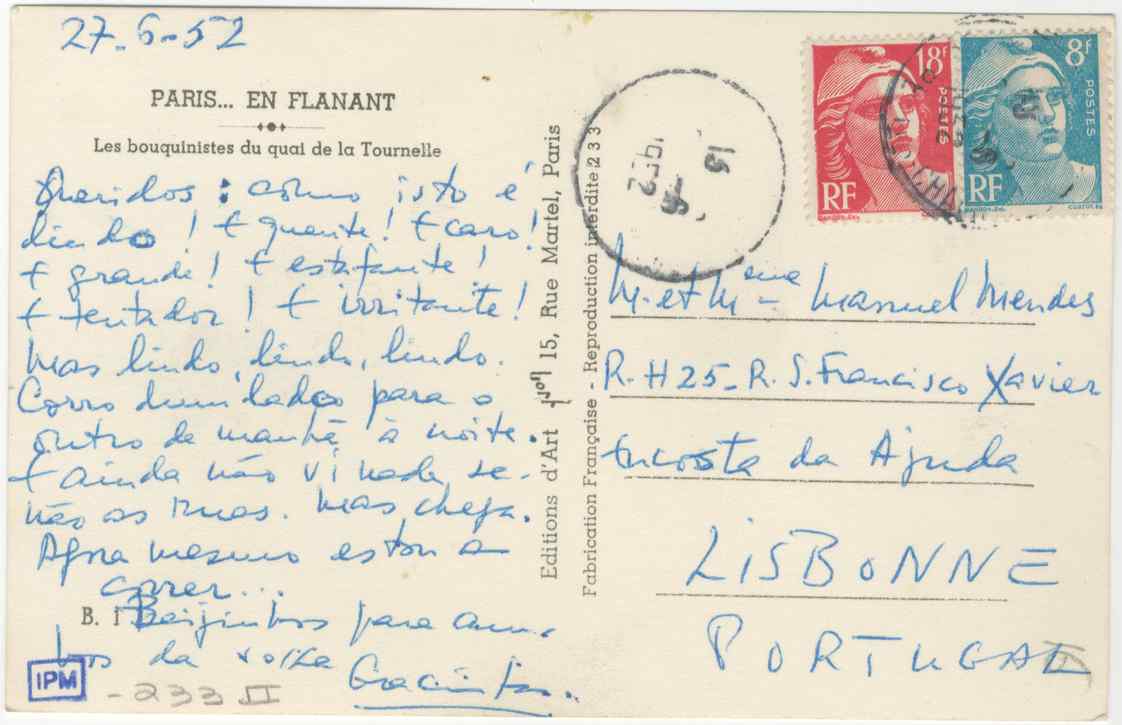 27-6-52
PARIS... EN FLANANT
Les bouquinistes du quai de la Tournelle
Queridos: como isto é
lindo! E quente! E caro!
E grande! E estafante!
E tentador! E irritante!
Mas lindo, lindo, lindo.
Corro dum lado para o
outro de manhã à noite.
E ainda não vi nada se-
não as ruas. Mas chega.
Agora mesmo estou a
correr...
B.
Beijinhos para am-
bos da vossa
Gracinta.
IPM
-233 II
Editions d'Art 15, Rue Martel, Paris
Fabrication Française - Reproduction interdite 233
18F
POSTES
RF
8F
POSTES
RF
1952
M. et Mme Manuel Mendes
R. H 25 - R. S. Francisco Xavier
Encosta da Ajuda
LISBONNE
PORTUGAL